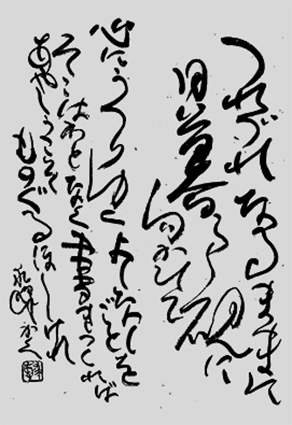 つれづれなるままに
日暮らし硯に
向かひて
心にうつりゆくよしなしごとを
そこはかとなく書きつくれば
あやしうこそ
ものぐるほしけれ